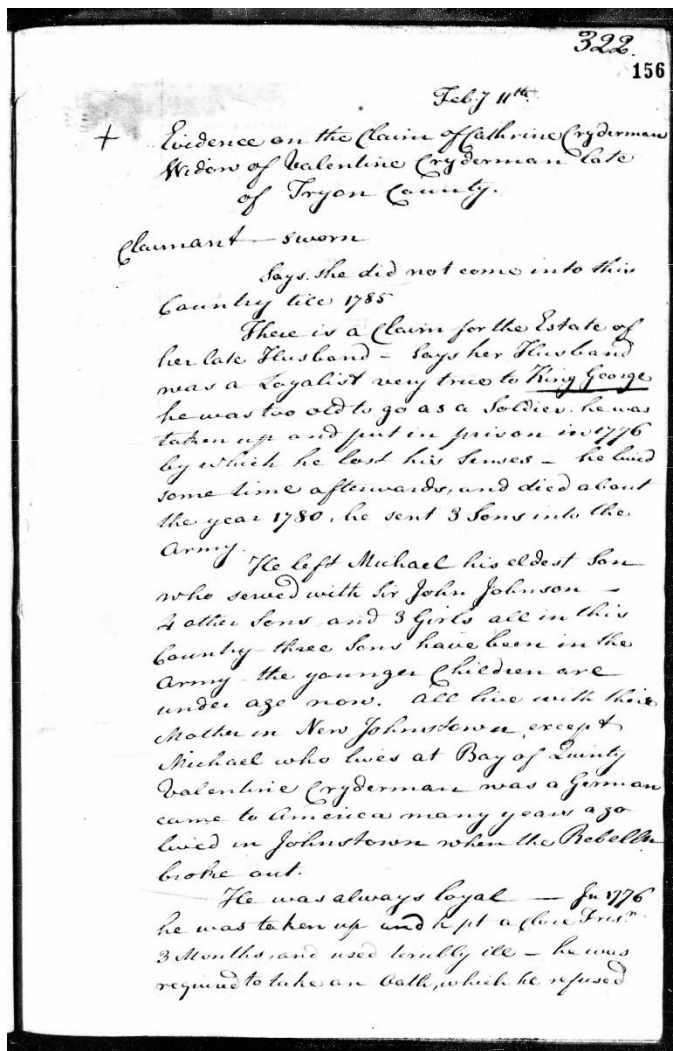 322.
156
Feb.y 11th.
+ Evidence on the Claim of Cathrine Cryderman
Widow of Valentine Cryderman late
of Tryon County.
Claimant — sworn
Says she did not come into this
Country till 1785
There is a Claim for the Estate of
her late Husband — Says her Husband
was a Loyalist very true to King George
he was too old to go as a Soldier. he was
taken up and put in prison in 1776
by which he lost his Senses — he lived
some time afterwards, and died about
the year 1780, he sent 3 Sons into the
Army.
He left Michael his eldest Son
who served with Sir John Johnson —
4 other Sons and 3 Girls all in this
Country — three Sons have been in the
Army — the younger Children are
under age now. All live with their
Mother in New Johnstown, except
Michael who lives at Bay of Quinty
Valentine Cryderman was a German
came to America many years ago
lived in Johnstown when the Rebelln
broke out.
He was always loyal — In 1776
he was taken up and kept a close Prisr.
3 Months, and used terribly ill — he was
required to take an Oath, which he refused